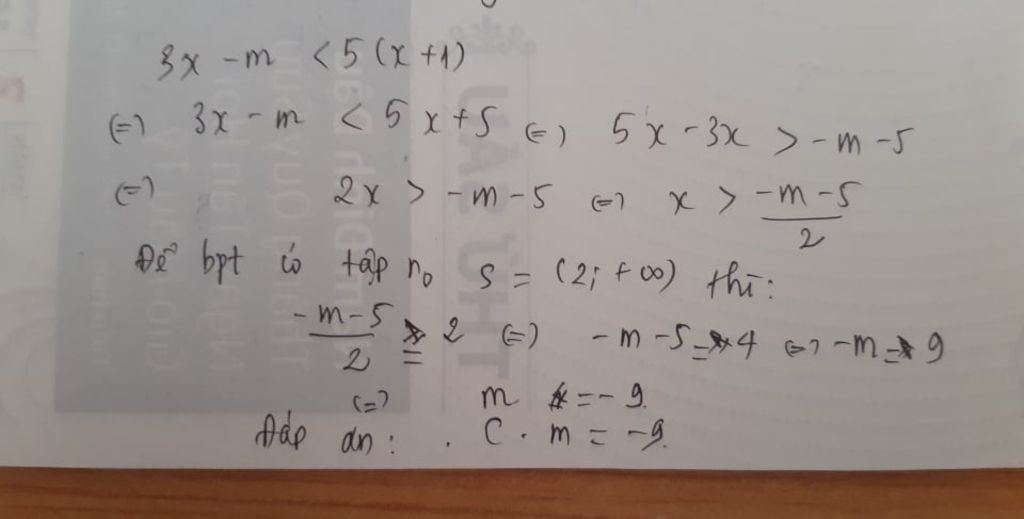 3x - m < 5 (x+1)
(=) 3x - m < 5x+5 (=) 5x - 3x > -m -5
(=) 2x > -m -5 (=) x > \frac{-m-5}{2}
Để bpt có tập no S = (2; +∞) thì:
\frac{-m-5}{2} = 2 (=) -m -5 = 4 (=) -m = 9
(=) m = -9.
Đáp án: . C. m = -9.